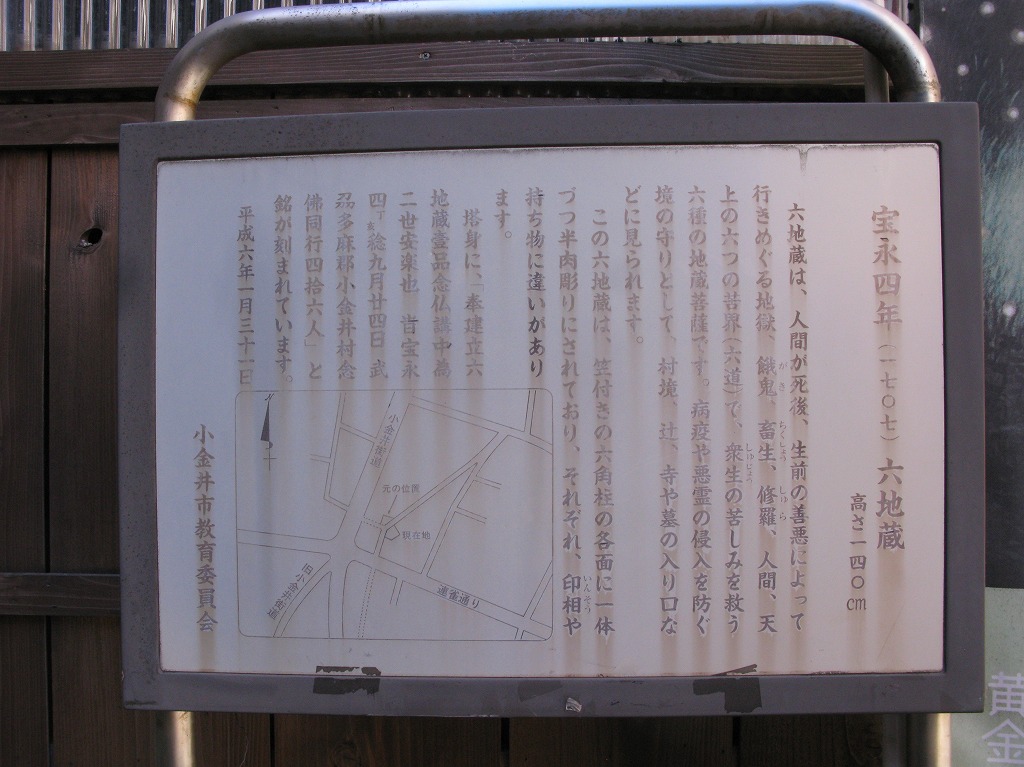 宝永四年（一七〇七） 六地蔵
高さ一四〇㎝
六地蔵は、人間が死後、生前の善悪によって
行きめぐる地獄、餓鬼、畜生、修羅、人間、天
がき ちくしょう しゅら
上の六つの苦界（六道）で、衆生の苦しみを救う
しゅじょう
六種の地蔵菩薩です。病疫や悪霊の侵入を防ぐ
境の守りとして、村境、辻、寺や墓の入り口な
どに見られます。
この六地蔵は、笠付きの六角柱の各面に一体
づつ半肉彫りにされており、それぞれ、印相や
いんそう
持ち物に違いがあり
ます。
塔身に、「奉建立六
地蔵壹品念仏講中為
二世安楽也 旹宝永
四丁亥稔九月廿四日 武
刕多麻郡小金井村念
佛同行四拾六人」と
銘が刻まれています。
平成六年一月三十一日
小金井市教育委員会
小金井街道
元の位置
現在地
連雀通り
旧小金井街道
黄金